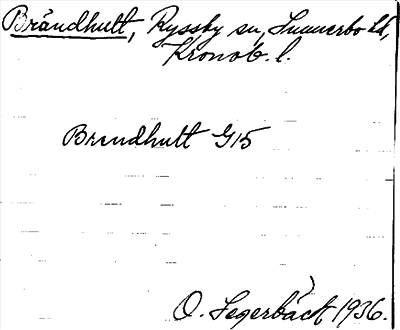 Brändhult, Ryssby sn, Sunnerbo hd,
Kronob. l.
Brendhult G15
O. Segerbäck, 1936.